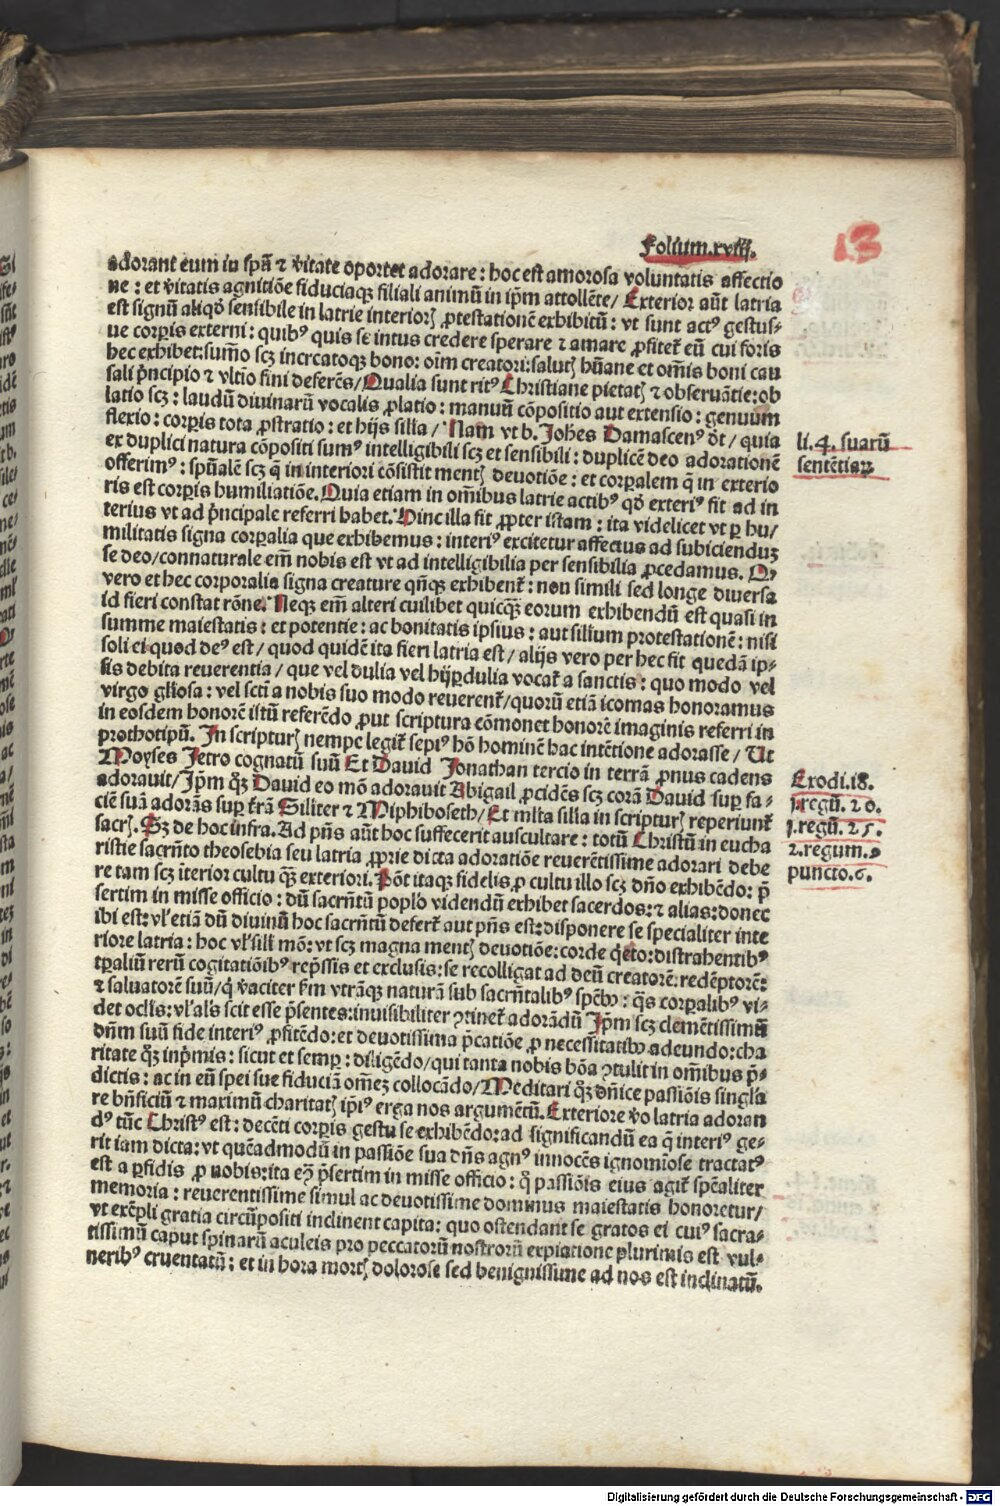 Folium.xviij.
13
adorant eum in sp̄u ⁊ v̄itate oportet adorare : hoc est amorosa voluntatis affectio
ne : et v̄itatis agnitiōe fiduciaqꝫ filiali animū in ip̄m attollēte/ Exterior aūt latria
est signū aliqḋ sensibile in latrie interiorꝭ ꝓtestationē exhibitū : vt sunt actꝰ gestus⸗
ue corꝑis externi : quibꝰ quis se intus credere sperare ⁊ amare ꝓfitet̃ eū cui foris
hec exhibet:sum̄o scꝫ increatoqꝫ bono: oīm creatori:salutꝭ hūane et om̄is boni cau
sali p̄ncipio ⁊ vltīo fini deferēs/ Qualia sunt ritꝰ Christiane pietatꝭ ⁊ obseruātie:ob
latio scꝫ : laudū diuinarū vocalis ꝓlatio : manuū cōpositio aut extensio : genuum
flexio : corꝑis tota ꝓstratio : et hijs silia / Nam vt b. Johēs Damascenꝰ ḋt / quia
ex duplici natura cōpositi sumꝰ intelligibili scꝫ et sensibili : duplicē deo adorationē
offerimꝰ : spūalē scꝫ q̄ in interiori cōsistit mentꝭ deuotiōe : et corꝑalem q̄ in exterio
ris est corꝑis humiliatiōe. Quia etiam in om̄ibus latrie actibꝰ qḋ exteriꝰ fit ad in
terius vt ad p̄ncipale referri habet. Hinc illa fit ꝓpter istam : ita videlicet vt ꝑ hu/
militatis signa corꝑalia que exhibemus : interiꝰ excitetur affectus ad subicienduꝫ
se deo/connaturale em̄ nobis est vt ad intelligibilia per sensibilia ꝓcedamus. Q⸗
vero et hec corporalia signa creature qn̄qꝫ exhibent̃ : non simili sed longe diuersa
id fieri constat rōne. Neqꝫ em̄ alteri cuilibet quicqꝫ eorum exhibendū est quasi in
summe maiestatis : et potentie : ac bonitatis ipsius : aut silium protestationē : nisi
soli ei quod deꝰ est / quod quidē ita fieri latria est / alijs vero per hec fit quedā ip⸗
sis debita reuerentia / que vel dulia vel hijꝑdulia vocat̃ a sanctis : quo modo vel
virgo gl̄iosa : vel sct̄i a nobis suo modo reuerent̃/quorū etiā icomas honoramus
in eosdem honorē istū referēdo ꝓut scriptura cōmonet honorē imaginis referri in
prothotipū. In scripturꝭ nempe legit̃ sepiꝰ hō hominē hac intētione adorasse / Ut
Moyses Jetro cognatū suū Et Dauid Jonathan tercio in terrā ꝓnus cadens
adorauit/ Ip̄m qꝫ Dauid eo mō adorauit Abigail ꝓcidēs scꝫ corā Dauid suꝑ fa⸗
ciē suā adorās suꝑ t̄rā Siliter ⁊ Miphiboseth/ Et ml̄ta silia in scripturꝭ reperiunt̃
sacrꝭ. Sꝫ de hoc infra. Ad pn̄s aūt hoc suffecerit auscultare : totū Christū in eucha
ristie sacrn̄to theosebia seu latria ꝓprie dicta adoratiōe reuerētissime adorari debe
re tam scꝫ īterior cultu qꝫ exteriori. Pōt itaqꝫ fidelis ꝓ cultu illo scꝫ dn̄o exhibēdo: p̄
sertim in misse officio : dū sacrn̄tū poplo videndū exhibet sacerdos:⁊ alias:donec
ibi est: vl̄ etiā dū diuinū hoc sacrn̄tū defert̃ aut pn̄s est:disponere se specialiter inte
riore latria : hoc vl̄ sili mō: vt scꝫ magna mentꝭ deuotiōe:corde q̄eto:distrahentibꝰ
tꝑaliū rerū cogitatiōibꝰ rep̄ssis et exclusis:se recolligat ad deū creatorē:redēptorē:
⁊ saluatorē suū/q̇ v̄aciter fm̄ vtrāqꝫ naturā sub sacrn̄talibꝰ sp̄ebꝰ : qs̄ corꝑalibꝰ vi⸗
det oclis: vl̄ al̄s scit esse p̄sentes:inuisibiliter ꝯtinet̃ adorādū Ip̄m scꝫ clemētissimū
dn̄m suū fide interiꝰ ꝓfitēdo:et deuotissima p̄catiōe ꝓ necessitatibꝰ adeundo:cha
ritate qꝫ inp̄mis : sicut et semꝑ : diligēdo/qui tanta nobis bōa ꝯtulit in om̄ibus p̄⸗
dictis : ac in eū spei sue fiduciā om̄eꝫ collocādo/ Meditari qꝫ dn̄ice passiōis singl̄a
re bn̄ficiū ⁊ maximū charitatꝭ ip̄iꝰ erga nos argumētū. Exteriore v̄o latria adoran
dꝰ tūc Christꝰ est : decēti corꝑis gestu se exhibēdo:ad significandū ea q̄ interiꝰ ge⸗
rit iam dicta: vt quēadmodū in passiōe sua dn̄s agnꝰ innocēs ignomīose tractatꝰ
est a ꝑfidis ꝓ nobis:ita p̄sertim in misse officio : q̄ passiōis eius agit̃ spēaliter
memoria : reuerentissime simul ac deuotissime dominus maiestatis honoretur/
vt exēpli gratia circūpositi inclinent capita: quo ostendant se gratos ei cuiꝰ sacra⸗
tissimū caput spinarū aculeis pro peccatorū nostrorū expiatione plurimis est vul⸗
neribꝰ cruentatū : et in hora mortꝭ dolorose sed benignissime ad nos est inclinatū.
li. 4. suarū
sentētiaꝝ
Exodi.18.
j.regū. 20.
j.regū. 25.
2.regum.9
puncto.6.
Digitalisierung gefördert durch die Deutsche Forschungsgemeinschaft - DFG